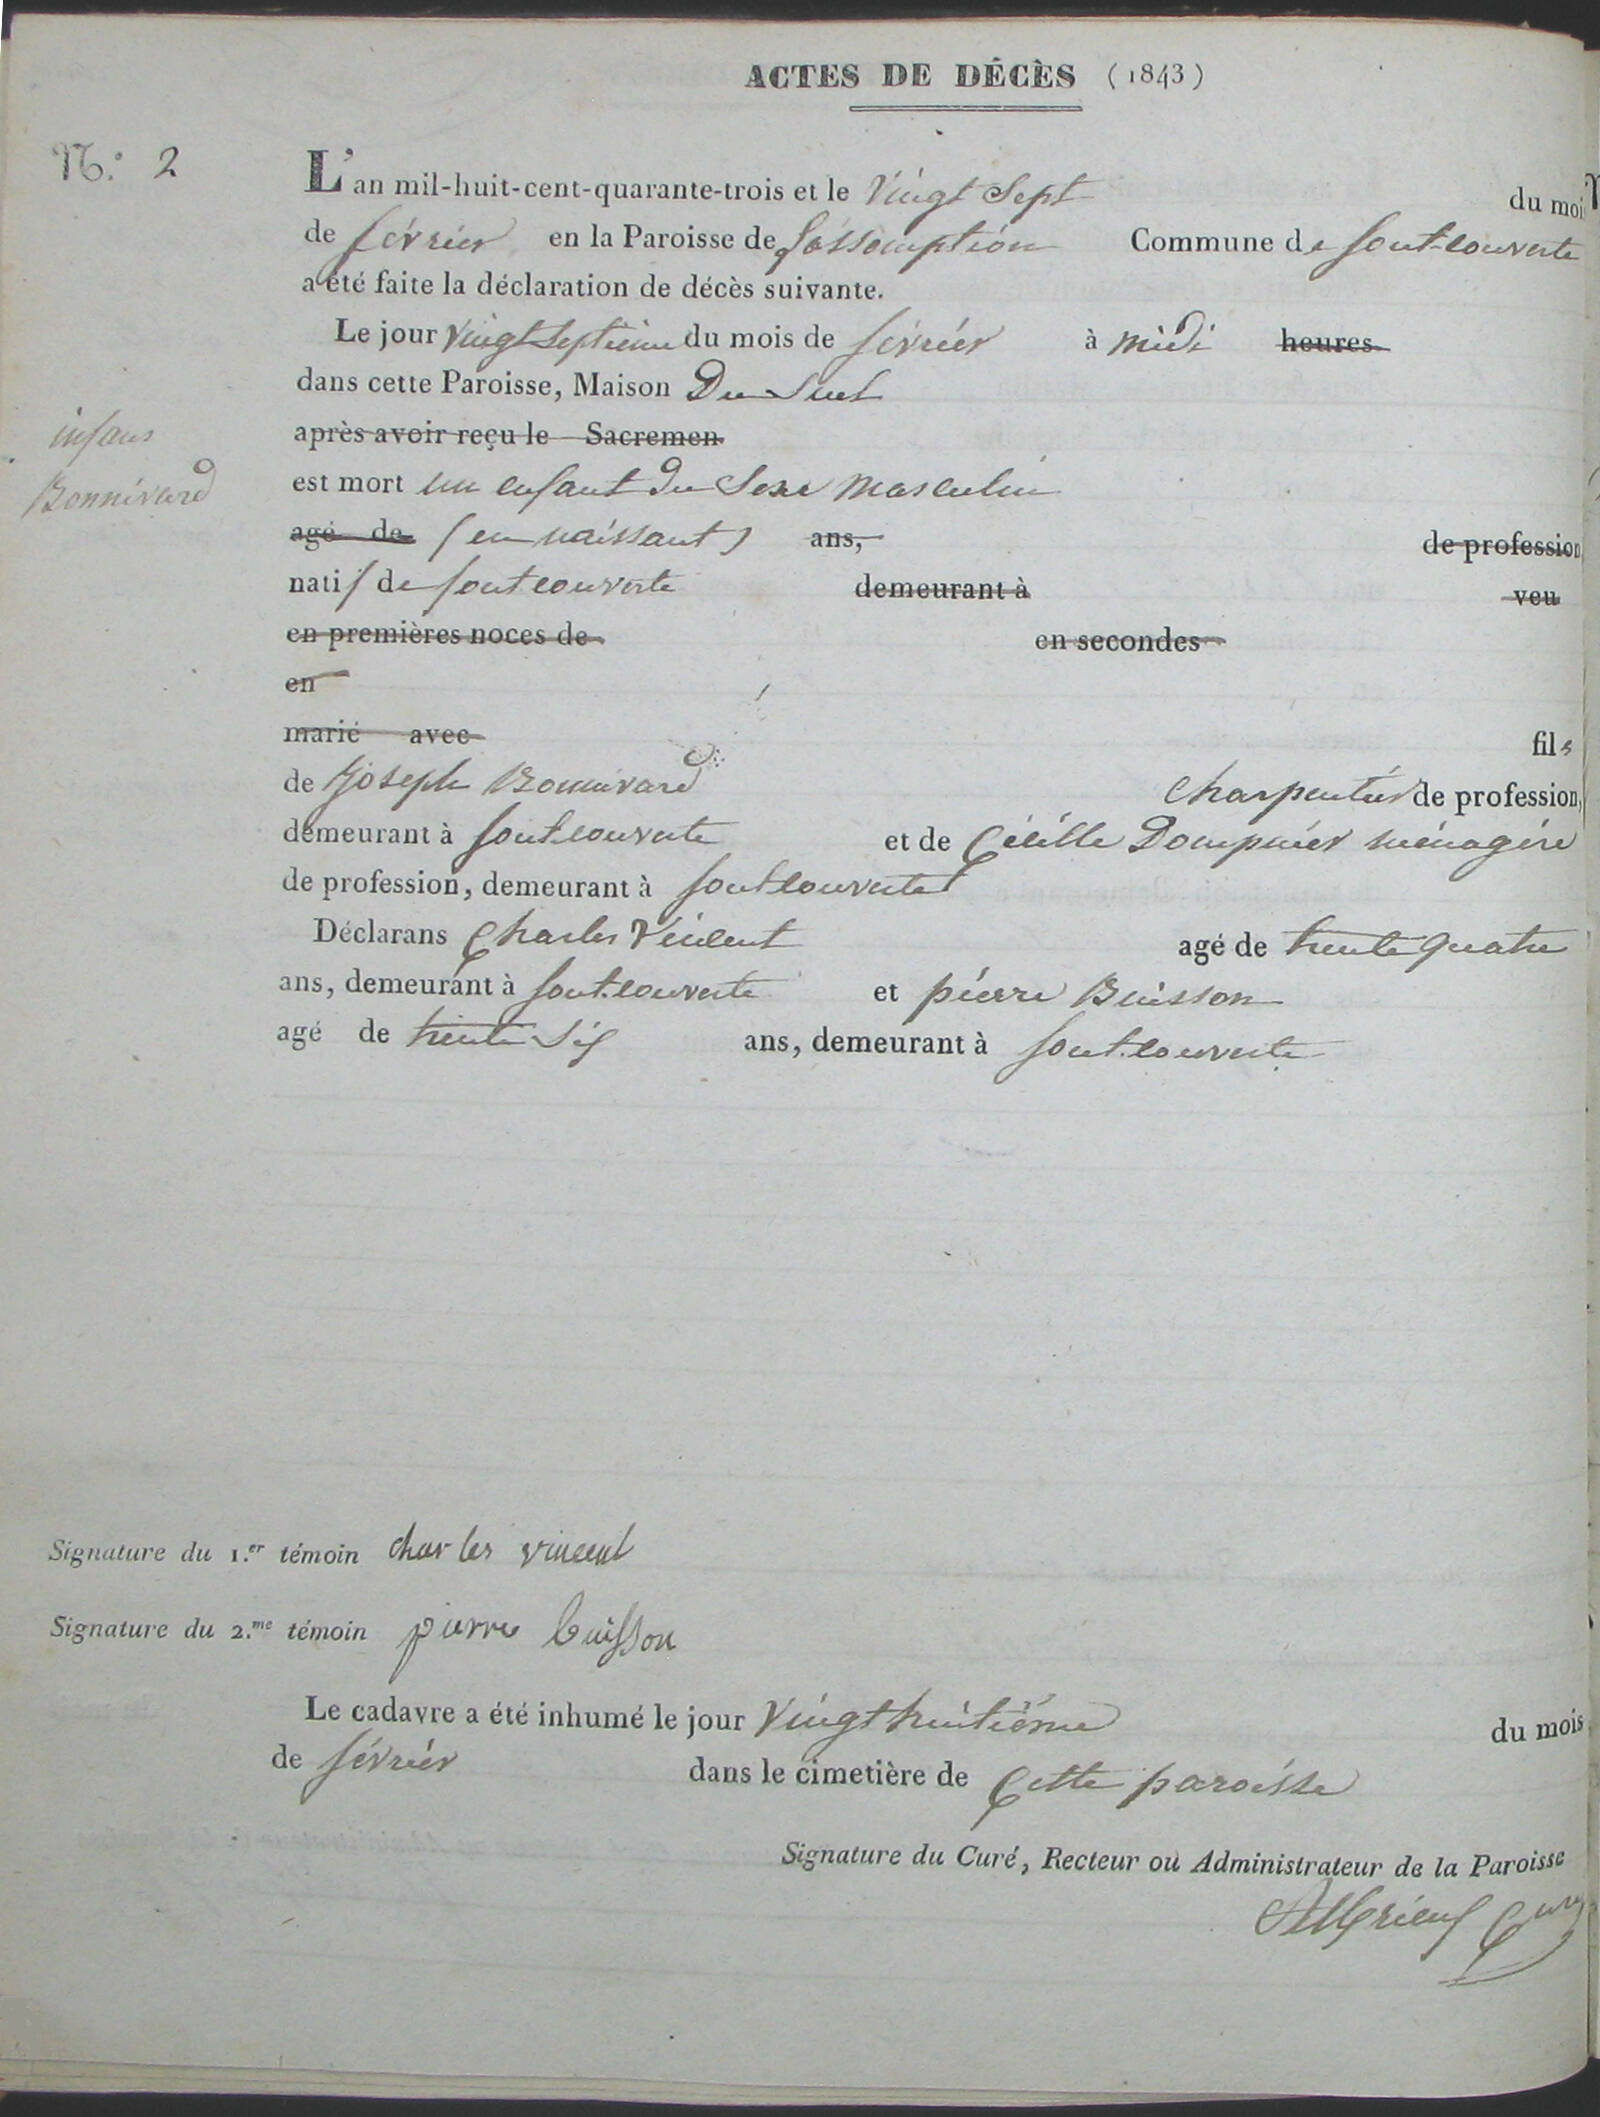 ACTES DE DÉCÈS (1843)
N.º 2
L'an mil-huit-cent-quarante-trois et le Vingt Sept du moi
de février en la Paroisse de L'assomption Commune de font-couverte
a été faite la déclaration de décès suivante.
Le jour Vingt septième du mois de février à midi heures
dans cette Paroisse, Maison Du Suel
après avoir reçu le Sacremen
infans
Bonnivard
est mort un enfant du Sexe masculin
agé de (en naissant) ans, de profession
natif de fontcouverte demeurant à veu
en premières noces de en secondes
en
marié avec fils
de Joseph Bonnivard Charpentier de profession,
demeurant à font-couverte et de Cécille Dompnier ménagère
de profession, demeurant à fontcouverte
Déclarans Charles Vincent agé de trente quatre
ans, demeurant à font-couverte et pierre Buisson
agé de trente Six ans, demeurant à font-couverte
Signature du 1.er témoin charles vincent
Signature du 2.me témoin pierre buisson
Le cadavre a été inhumé le jour Vingt huitième du mois
de février dans le cimetière de Cette paroisse
Signature du Curé, Recteur ou Administrateur de la Paroisse
Curé